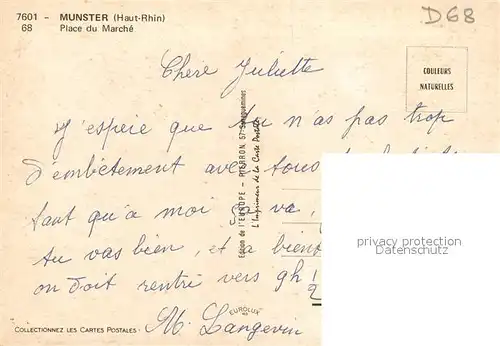 7601 - MUNSTER (Haut-Rhin)
68 Place du Marché
D68
COULEURS
NATURELLES
Chere Juliette
J'espère que tu n'as pas trop
d'embêtement avec tous
tant qu'a moi va,
tu vas bien, et a bient
on doit rentré vers 9h
M. Langevin
Edition de l'EUROPE - PIERRON, 57-Sarreguemines
L'Imprimeur de la Carte Postale
privacy protection
Datenschutz
EUROLUX
COLLECTIONNEZ LES CARTES POSTALES